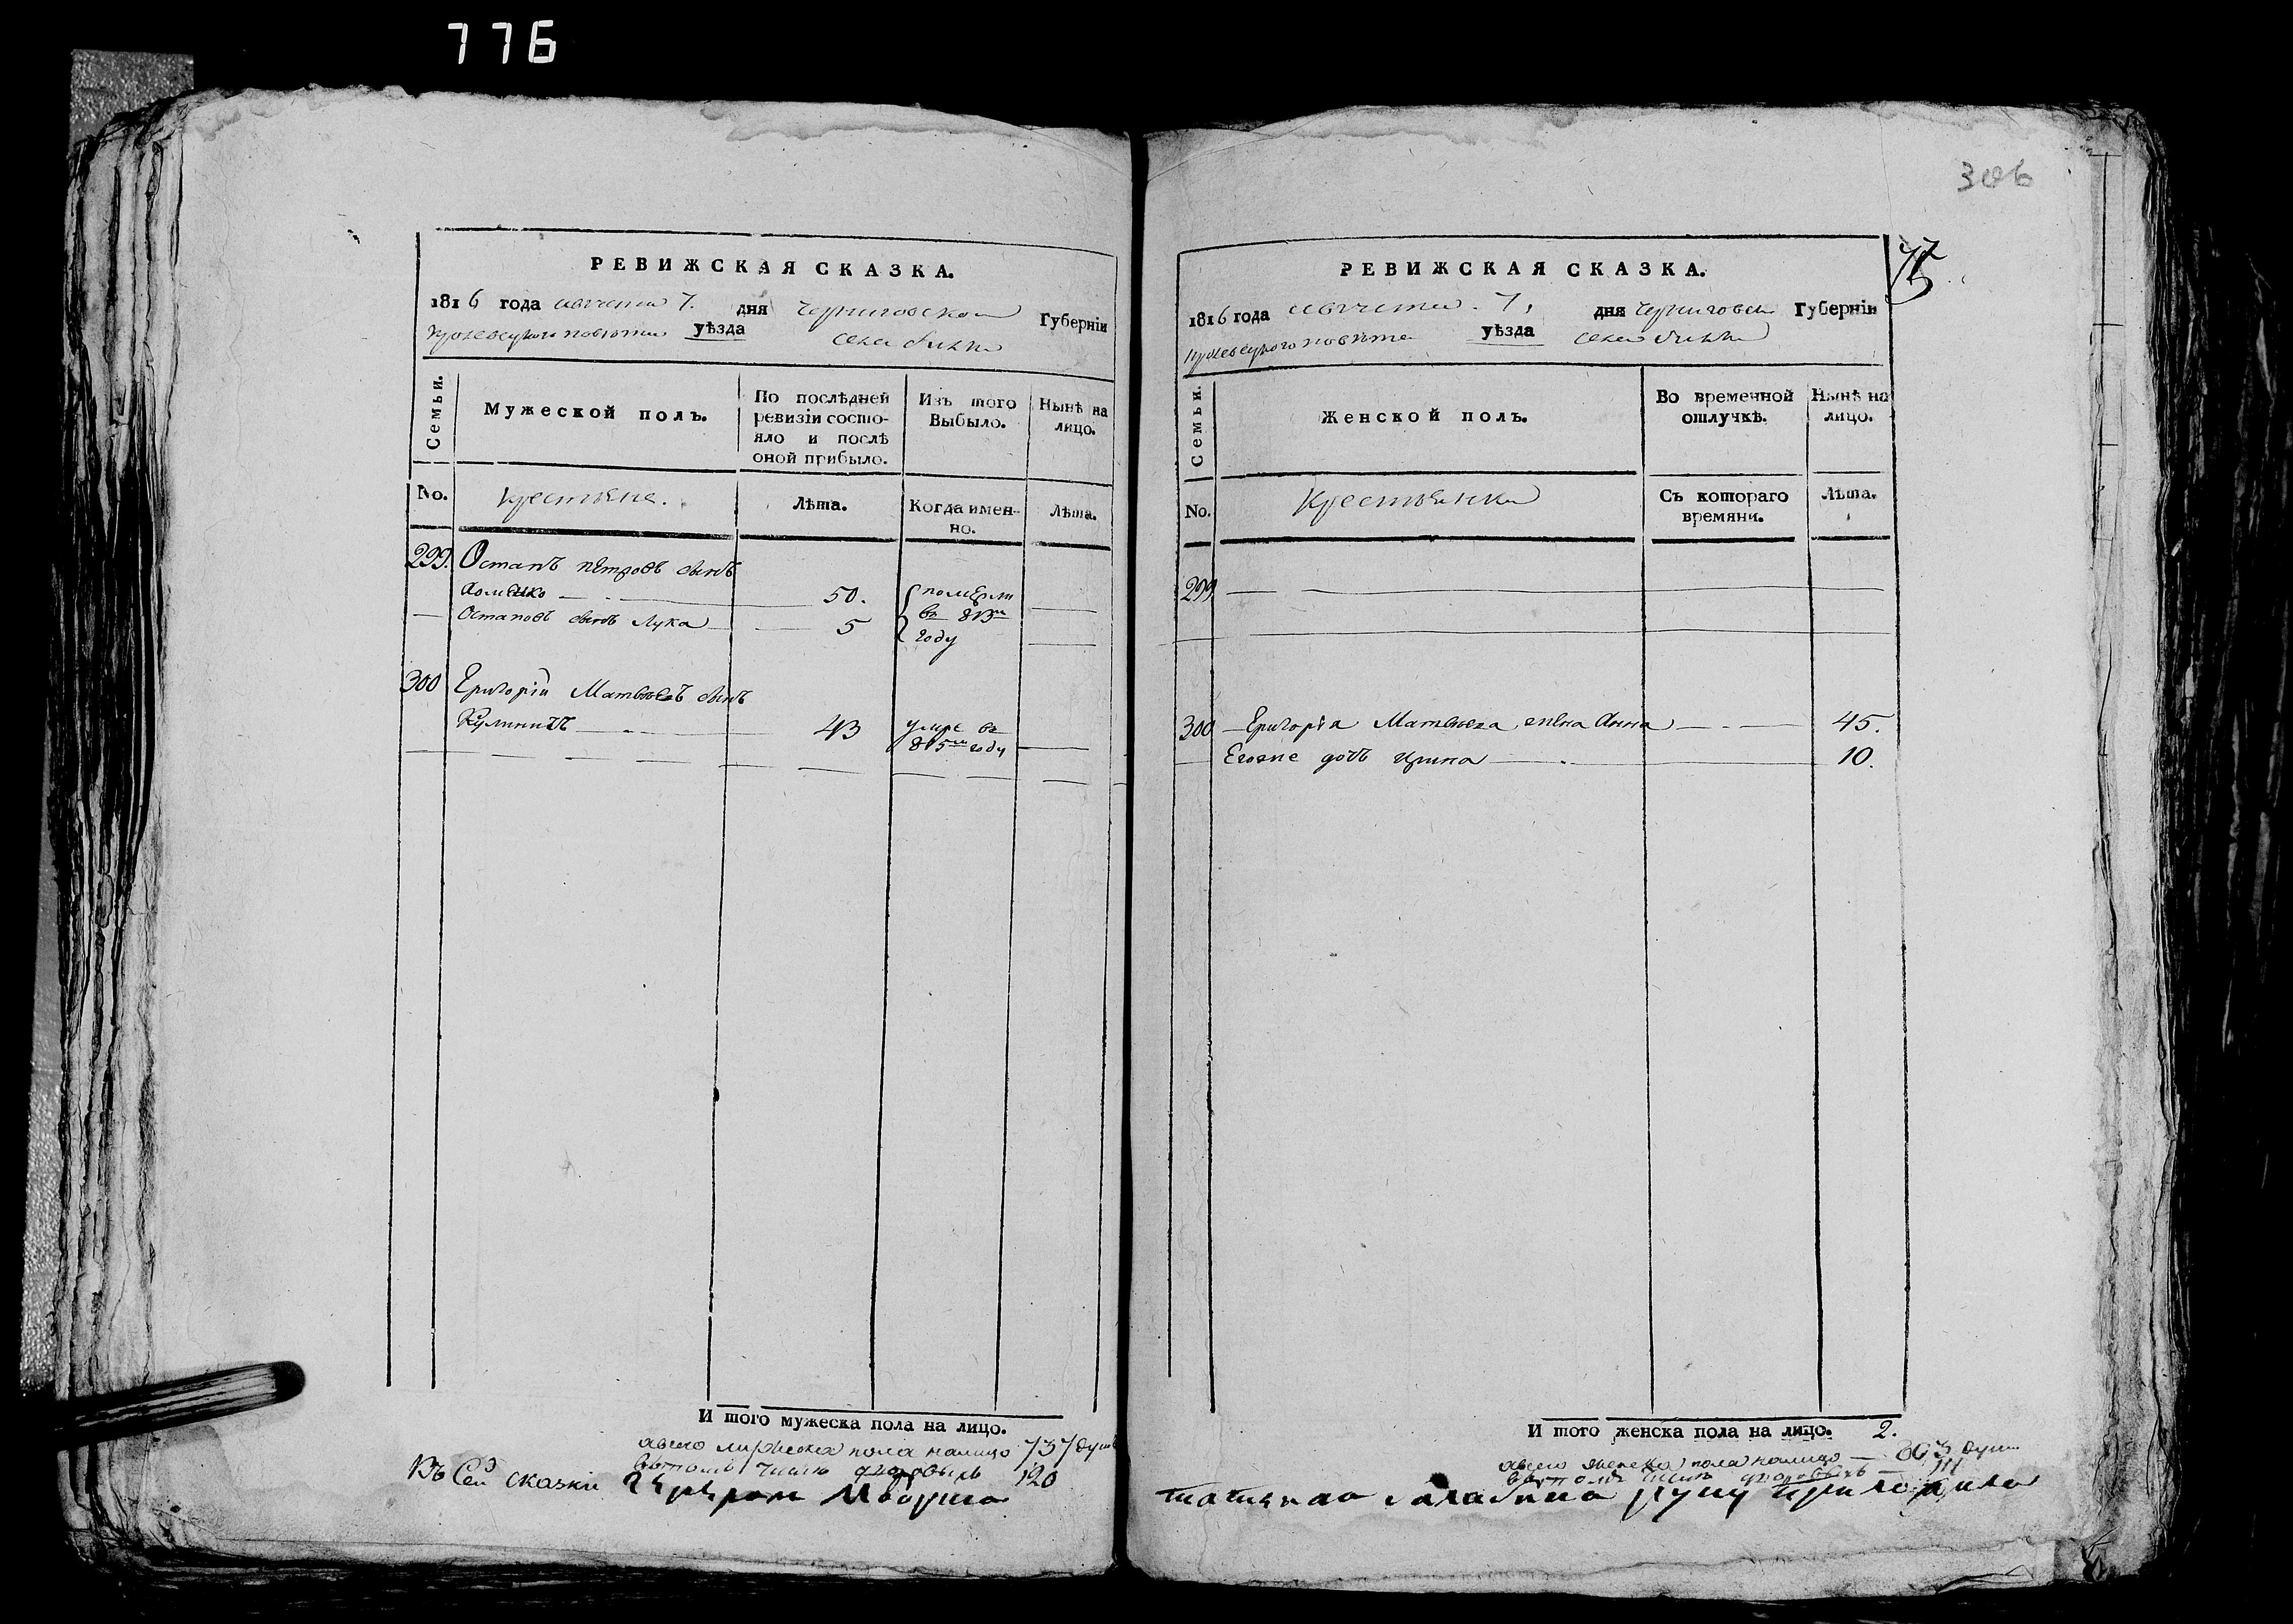 776
306
75
РЕВИЖСКАЯ СКАЗКА.
1816 года августа 7. дня Черниговской Губерніи
Кролевецкого повѣта уѣзда села
Семьи.
Мужеской полъ.
По послѣдней ревизіи состо-
яло и послѣ
оной прибыло.
Изъ того
Выбыло.
Нынѣ на
лицо.
No.
крестьяне.
Лѣта.
Когда имен-
но.
Лѣта.
299. Остапъ петровъ сынъ
50. померли
Остаповъ сынъ Лука 5 въ 813м
году
300 Григорій Матвѣевъ сынъ
43 умре въ
815м году
И того мужеска пола на лицо.
авсего мужеска пола налицо 737 душъ
втомъ числѣ дворовыхъ 120
Въ Сей сказки
РЕВИЖСКАЯ СКАЗКА.
1816 года августа 7, дня Черниговской Губерніи
Кролевецкого повѣта уѣзда села
Семьи.
Женской полъ.
Во временной
отлучкѣ.
Нынѣ на
лицо.
No.
Крестьянки
Съ котораго
времяни.
Лѣта.
299
300 Григорія Матвѣева жена Анна 45.
Егоже дочь Ирина 10.
И того женска пола на лицо. 2.
авсего женска пола налицо душъ
втомъ числѣ дворовыхъ 111
руку приложила